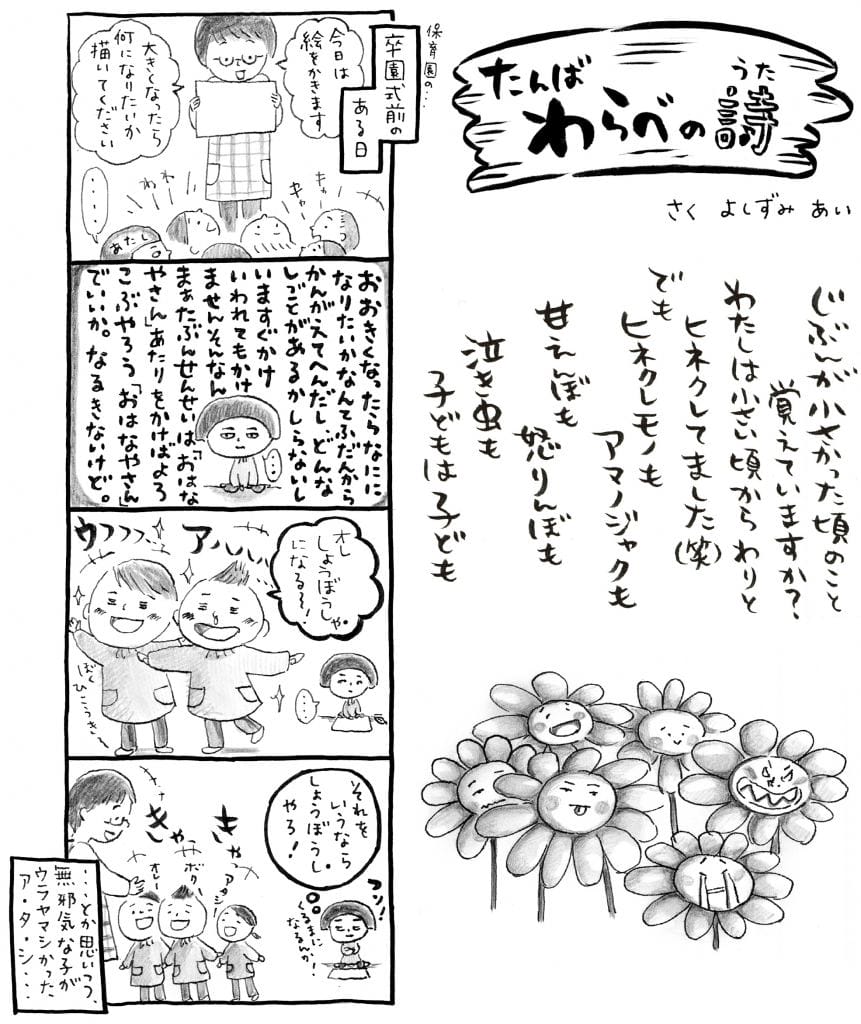 うた
たんば
わらべの詩
さく よしずみ あい
じぶんが小さかった頃のこと
覚えていますか？
わたしは小さい頃からわりと
ヒネクレてました(笑)
でも
ヒネクレモノも
アマノジャクも
甘えんぼも
怒りんぼも
泣き虫も
子どもは子ども
保育園の…
卒園式前の
ある日
今日は
絵をかきます
大きくなったら
何になりたいか
描いてください
キャッ
キャー
わ
わ
あたし
・・・・
おおきくなったらなにに
なりたいかなんてふだんから
かんがえてへんだし、どんな
しごとがあるかしらないし
いますぐかけ
いわれてもかけ
ませんそんなん
まぁたぶんせんせいは「おはな
やさん」あたりをかけばよろ
こぶやろう「おはなやさん」
でいいか。なるきないけど。
・・・
オレ
しょうぼうしゃ
になる〜！
アハハハハ
ウフフフフ
ぼく
ひこうき〜
・・・
それを
いうなら
しょうぼうし
やろ！
フン！
くるまに
なるんか！
きゃっ
きゃっ
アタシー
ボクー
オレー
…とか思いつつ、
無邪気な子が
ウラヤマシかった
ア・タ・シ…